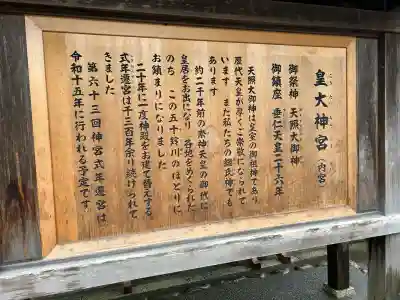 こうたいじんぐう
皇大神宮（内宮）
御祭神　天照大御神
御鎮座　垂仁天皇二十六年
天照大御神は皇室の御祖神であり
歴代天皇が厚くご崇敬になられて
います　また私たちの総氏神でも
あります
約二千年前の崇神天皇の御代に
皇居をお出になり　各地をめぐられた
のち　この五十鈴川のほとりに
お鎮まりになりました
二十年に一度神殿をお建て替えする
式年遷宮は千三百年余り続けられて
きました
第六十三回神宮式年遷宮は
令和十五年に行われる予定です